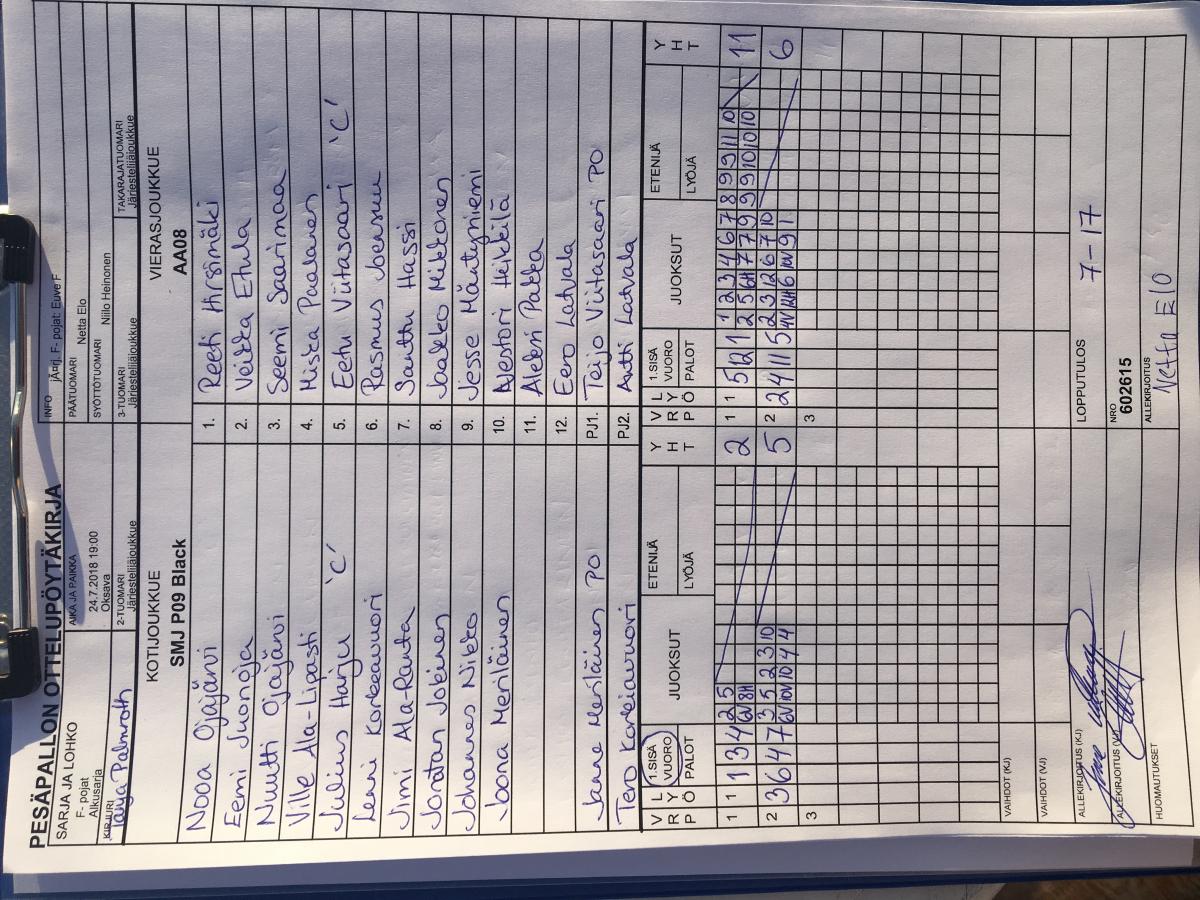 PESÄPALLON OTTELUPÖYTÄKIRJA
SARJA JA LOHKO
F- pojat
Alkusarja
KIRJURI
Taija Palmroth
AIKA JA PAIKKA
24.7.2018 19:00
Oksava
2-TUOMARI
Järjestelijäjoukkue
INFO jÄ¤rj. F- pojat: Euve F
PÄÄTUOMARI
Netta Elo
SYÖTTÖTUOMARI
Niilo Heinonen
3-TUOMARI
Järjestelijäjoukkue
TAKARAJATUOMARI
Järjestelijäjoukkue
KOTIJOUKKUE
SMJ P09 Black
VIERASJOUKKUE
AA08
Nooa Ojajärvi 1. Reeti Hirsimäki
Eemi Juonoja 2. Veikka Etula
Nuutti Ojajärvi 3. Seemi Saarimaa
Ville Ala-Lipasti 4. Miska Paalanen
Julius Harju 'C' 5. Eetu Viitasaari 'C'
Leevi Korkeavuori 6. Rasmus Joensuu
Jimi Ala-Ranta 7. Santtu Hassi
Jonatan Jokinen 8. Jaakko Mikkonen
Johannes Nikko 9. Jesse Mäntyniemi
Joona Meriläinen 10. Nestori Heikkilä
11. Aleksi Pakka
12. Eero Latvala
Janne Meriläinen PO PJ1. Teijo Viitasaari PO
Tero Korkeavuori PJ2. Antti Latvala
V R L Y P Ö 1.SISÄ VUORO PALOT JUOKSUT ETENIJÄ LYÖJÄ Y H T
V R L Y P Ö 1.SISÄ VUORO PALOT JUOKSUT ETENIJÄ LYÖJÄ Y H T
1 1 1 3 4 2 5 2
6V 8H
1 1 5 12 1 1 2 3 4 6 7 8 9 9 11 10 11
2 5 6H 7 7 9 9 9 10 10 10
2 3 6 4 7 3 5 2 3 10 5
6V 10V 10 4 4
2 2 4 11 5 2 3 12 6 7 10 6
4V 12H 6 10V 9 1
3
3
VAIHDOT (KJ)
VAIHDOT (VJ)
ALLEKIRJOITUS (KJ)
ALLEKIRJOITUS (VJ)
HUOMAUTUKSET
LOPPUTULOS 7-17
NRO
602615
ALLEKIRJOITUS
Netta Elo